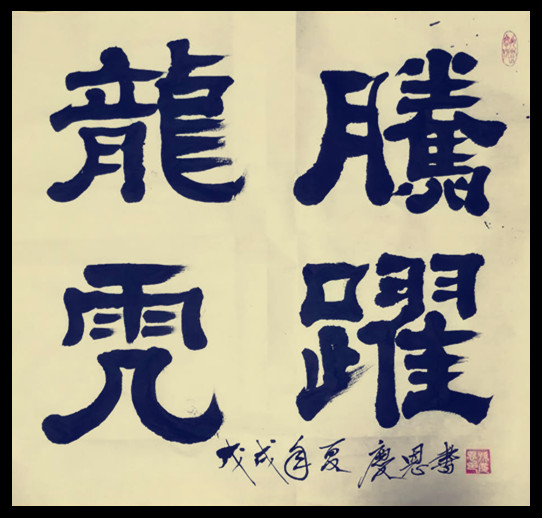 龍騰
虎躍
戊戌年夏 慶恩書